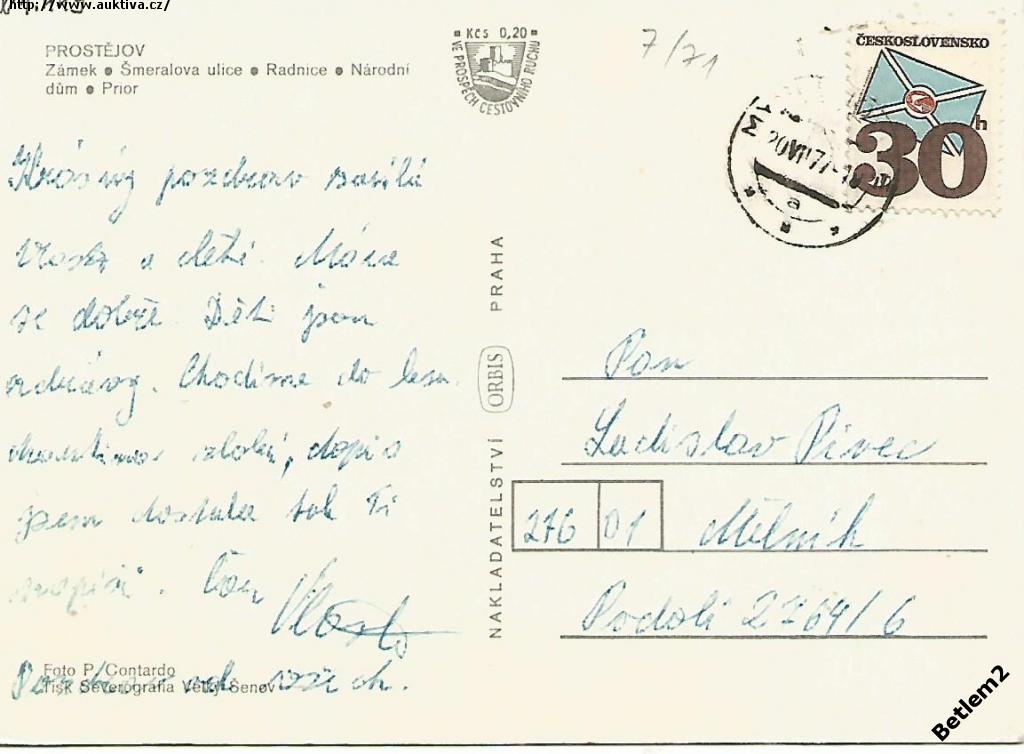 http://www.auktiva.cz/
PROSTĚJOV
Zámek ● Šmeralova ulice ● Radnice ● Národní
dům ● Prior
Kčs 0,20
VE PROSPĚCH CESTOVNÍHO RUCHU
7/71
ČESKOSLOVENSKO
30h
20.VII.77
a
Krásný pozdrav
a děti. Máme
se dobře. Děti jsou
zdrávy. Chodíme do lesa
zlobí, dopis
jsem dostala tak Ti
Vlasta
Pozdrav od všech.
Foto P. Contardo
Tisk Severografia Velký Šenov
NAKLADATELSTVÍ ORBIS PRAHA
Pan
Ladislav Pivec
276 01 Mělník
Podolí 2764/6
Betlem2